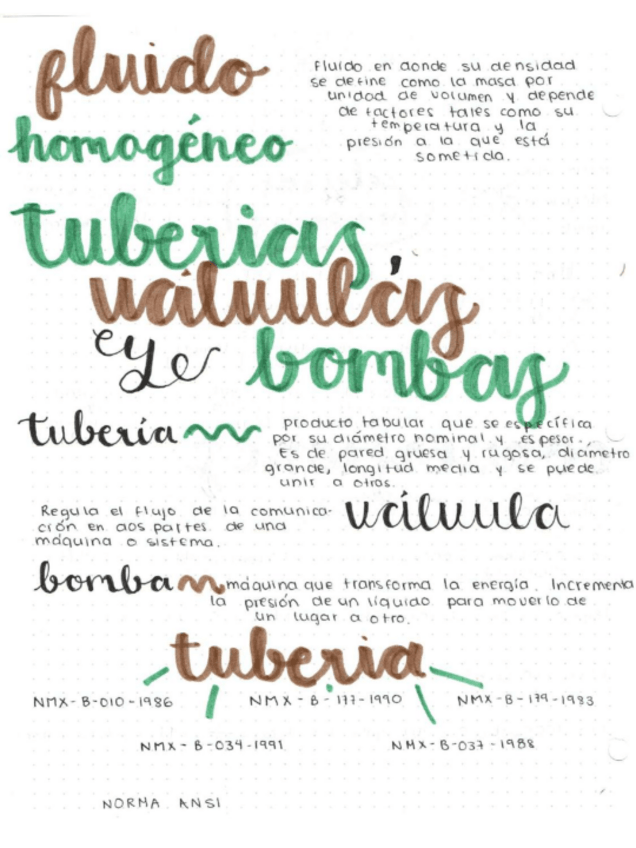 fluido
homogéneo
Fluido en donde su densidad
se define como la masa por
unidad de volumen y depende
de factores tales como su
temperatura y la
presión a la que está
sometida.
tuberias,
válvulas
y
bombas
tubería
producto tabular que se específica
por su diámetro nominal y espesor.
Es de pared gruesa y rugosa, diámetro
grande, longitud media y se puede
unir a otros.
Regula el flujo de la comunica-
ción en dos partes de una
máquina o sistema.
válvula
bomba
máquina que transforma la energía. Incrementa
la presión de un líquido para moverlo de
un lugar a otro.
tuberia
NMX-B-010-1986
NMX-B-177-1990
NMX-B-179-1983
NMX-B-034-1991
NMX-B-037-1988
NORMA ANSI